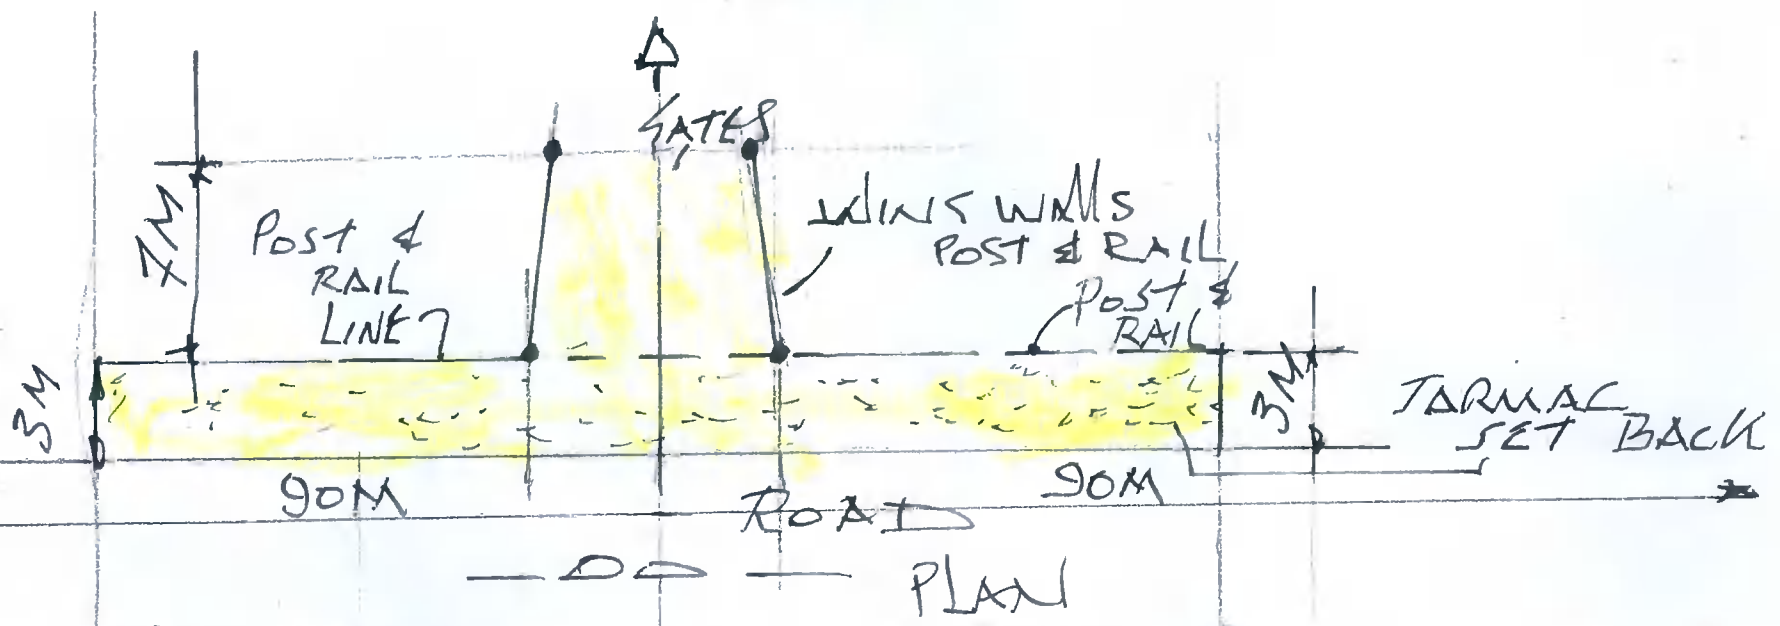 GATES
7M
POST &
RAIL
LINE
WING WALLS
POST & RAIL
POST &
RAIL
3M
3M
TARMAC
SET BACK
90M
90M
ROAD
PLAN